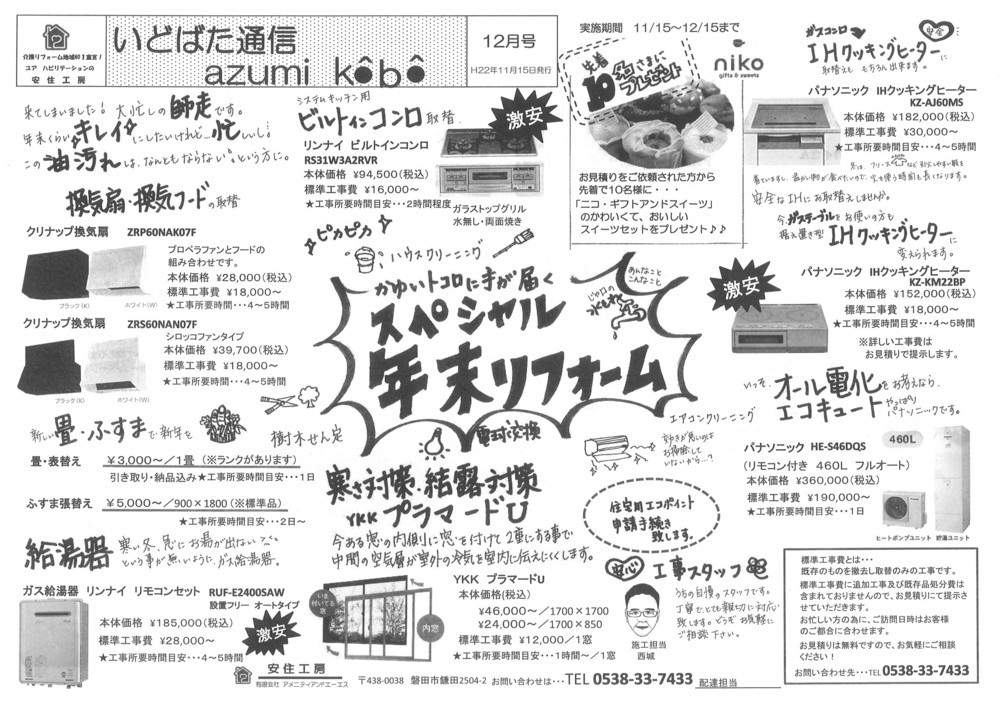 介護リフォーム地域NO1宣言!
ユア ハビリテーションの
安住工房
いどばた通信
azumi kôbô
12月号
H22年11月15日発行
来てしまいました! 大忙しの師走です。
年末くらいキレイにしたいけれど…忙しいし!
この油汚れは、なんともならない。という方に。
換気扇・換気フードの取替
クリナップ換気扇 ZRP60NAK07F
プロペラファンとフードの
組み合わせです。
本体価格 ¥28,000(税込)
標準工事費 ¥18,000~
★工事所要時間目安・・・4~5時間
ブラック(K) ホワイト(W)
クリナップ換気扇 ZRS60NAN07F
シロッコファンタイプ
本体価格 ¥39,700(税込)
標準工事費 ¥18,000~
★工事所要時間目安・・・4~5時間
ブラック(K) ホワイト(W)
新しい畳・ふすまで新年を
畳・表替え ¥3,000~/1畳 (※ランクがあります)
引き取り・納品込み★工事所要時間目安・・・1日
ふすま張替え ¥5,000~/900×1800(※標準品)
★工事所要時間目安・・・2日~
給湯器
寒い冬、急にお湯が出ない
という事が無いように、ガス給湯器。
ガス給湯器 リンナイ リモコンセット RUF-E2400SAW
設置フリー オートタイプ
本体価格 ¥185,000(税込)
標準工事費 ¥28,000~
★工事所要時間目安・・・4~5時間
激安
システムキッチン用
ビルトインコンロ取替
リンナイ ビルトインコンロ
RS31W3A2RVR
本体価格 ¥94,500(税込)
標準工事費 ¥16,000~
★工事所要時間目安・・・2時間程度
激安
ガラストップグリル
水無し・両面焼き
ピカピカ
ハウスクリーニング
かゆいトコロに手が届く
スペシャル
年末リフォーム
あんなこと
こんなこと
じゃ口の
水もれ
樹木せん定
電球交換
エアコンクリーニング
効きが悪いのは
お掃除して
いないから…?
寒さ対策・結露対策
YKK プラマードU
今ある窓の内側に窓を付けて2重にする事で
中間の空気層が室外の冷気を室内に伝えにくくします。
いま
付いてる
窓
内窓
YKK プラマードU
本体価格(税込)
¥46,000~/1700×1700
¥24,000~/1700×850
標準工事費 ¥12,000/1窓
★工事所要時間目安・・・1時間~/1窓
実施期間 11/15~12/15まで
先着
10名さまに
プレゼント
niko
gifts & sweets
お見積りをご依頼された方から
先着で10名様に・・・
「ニコ・ギフトアンドスイーツ」
のかわいくて、おいしい
スイーツセットをプレゼント♪♪
ガスコンロ
安全
IHクッキングヒーターに
取替えも もちろん出来ます。
パナソニック IHクッキングヒーター
KZ-AJ60MS
本体価格 ¥182,000(税込)
標準工事費 ¥30,000~
★工事所要時間目安・・・4~5時間
安全なIHにお取替えしませんか。
今、ガステーブルをお使いの方も
据え置き型IHクッキングヒーターに
変えられます。
パナソニック IHクッキングヒーター
KZ-KM22BP
激安
本体価格 ¥152,000(税込)
標準工事費 ¥18,000~
★工事所要時間目安・・・4~5時間
※詳しい工事費は
お見積りで提示します。
いっそ、オール電化をお考えなら、
エコキュート やっぱり
パナソニックです。
パナソニック HE-S46DQS
(リモコン付き 460L フルオート)
本体価格 ¥360,000(税込)
標準工事費 ¥190,000~
★工事所要時間目安・・・1日
460L
ヒートポンプユニット 貯湯ユニット
住宅用エコポイント
申請手続き
致します。
安心
工事スタッフ
うちの自慢のスタッフです。
丁寧でとても親切に対応
致します。どうぞお気軽に
ご相談下さい。
施工担当
西城
標準工事費とは・・・
既存のものを撤去し取替のみの工事です。
標準工事費に追加工事及び既存品処分費は
含まれておりませんので、お見積りにて提示さ
せていただきます。
お忙しい方の為に、ご訪問日時はお客様
のご都合に合わせます。
お見積りは無料ですので、お気軽にご相談
ください!
お問い合わせ先・・・TEL 0538-33-7433
安住工房
有限会社 アメニティアンドエーエス
〒438-0038 磐田市鎌田2504-2 お問い合わせは・・・TEL 0538-33-7433 配達担当